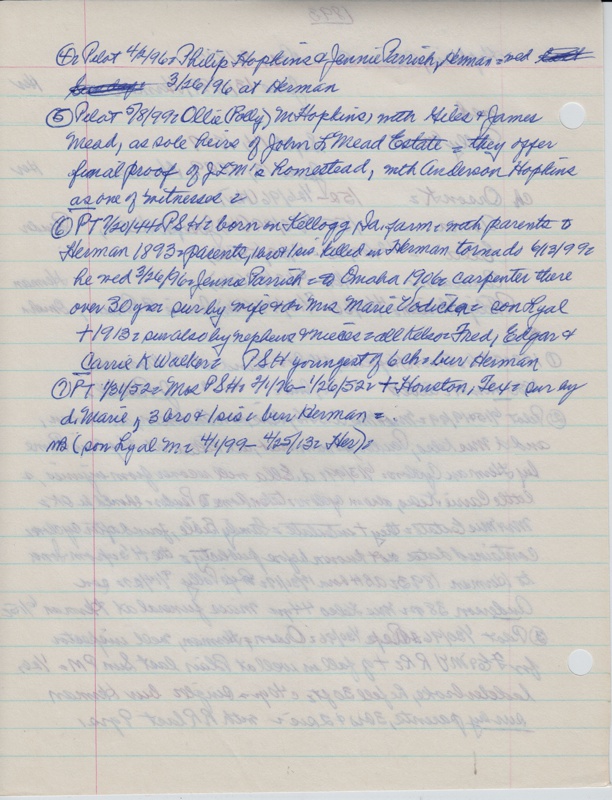 ④ Pilot 4/2/96= Philip Hopkins & Jennie Parrish, Herman = wed
3/26/96 at Herman
⑤ Pilot 5/3/99= Ollie (Polly) M Hopkins, with Hiles & James
Mead, as sole heirs of John L Mead Estate = they offer
final proof of JLM's homestead, with Anderson Hopkins
as one of witnesses =
⑥ PT 7/20/44= PSH = born on Kellogg, Ia. farm = with parents to
Herman 1893 = parents, 1 bro & 1 sis killed in Herman tornado 6/13/99=
he wed 3/26/96= Jennie Parrish = to Omaha 1906= carpenter there
over 30 yrs= sur by wife & dr Mrs Marie Vodicka = son Lyal
+ 1913 = sur also by nephews & nieces = all Kelso= Fred, Edgar &
Carrie K Walker = PSH youngest of 6 ch = bur Herman
⑦ PT 1/31/52= Mrs PSH= 2/1/76 - 1/26/52= + Houston, Tex = sur by
d. Marie, 3 bro & 1 sis = bur Herman =
(son Lyal M = 4/1/99 - 4/25/13= Her) =
1893